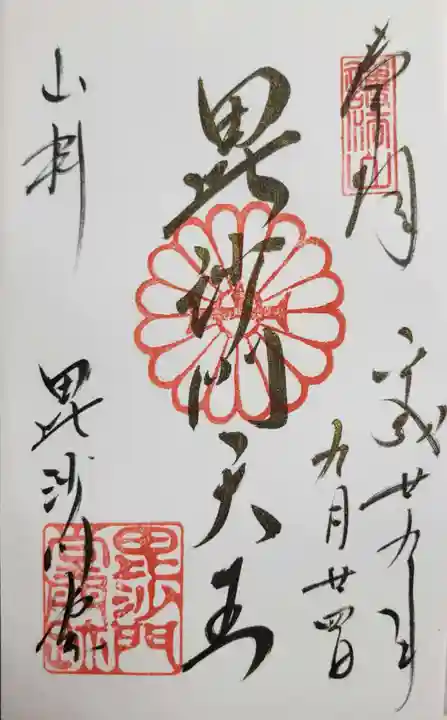 奉拝
平成廿九年
九月廿四日
毘沙門天王
山科
毘沙門堂
毘沙門
堂門跡